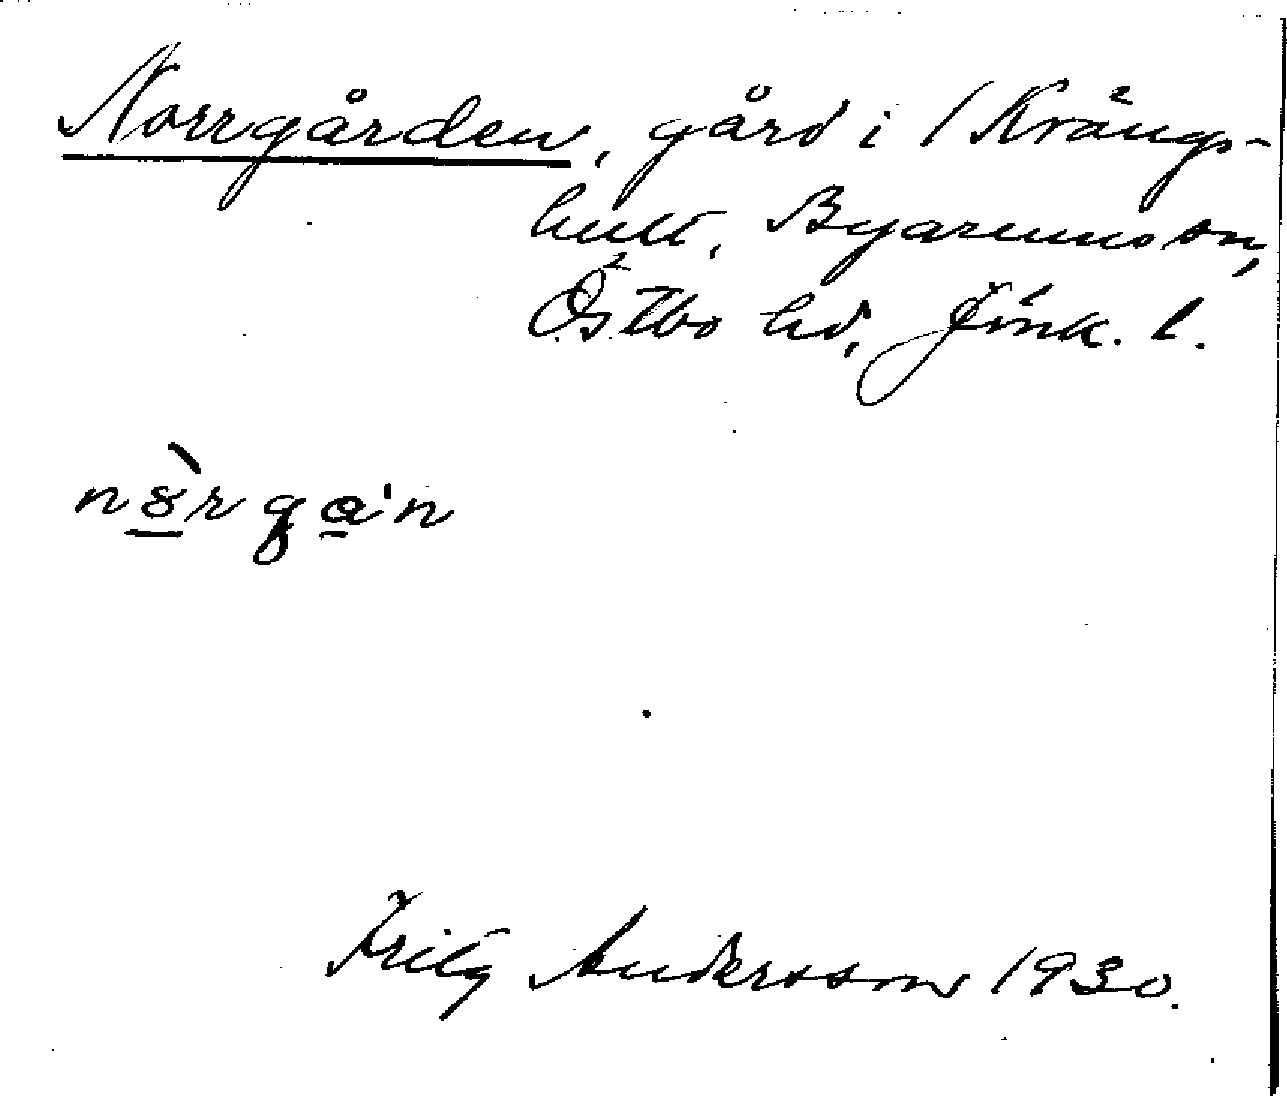 Norrgården, gård i / Krängs-
hult, Byarums sn,
Östbo hd, Jönk. l.
nèrga'n
Fritz Andersson 1930.